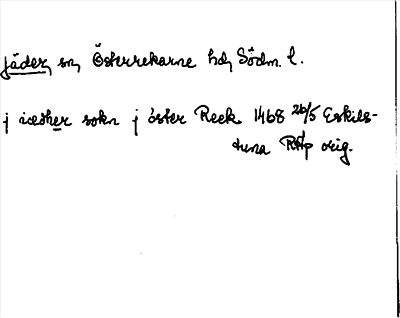 Jäder, sn, Österrekarne hd, Södm. l.
j icedher sokn j öster Reek 1468 26/5 Eskils-
tuna RAp orig.